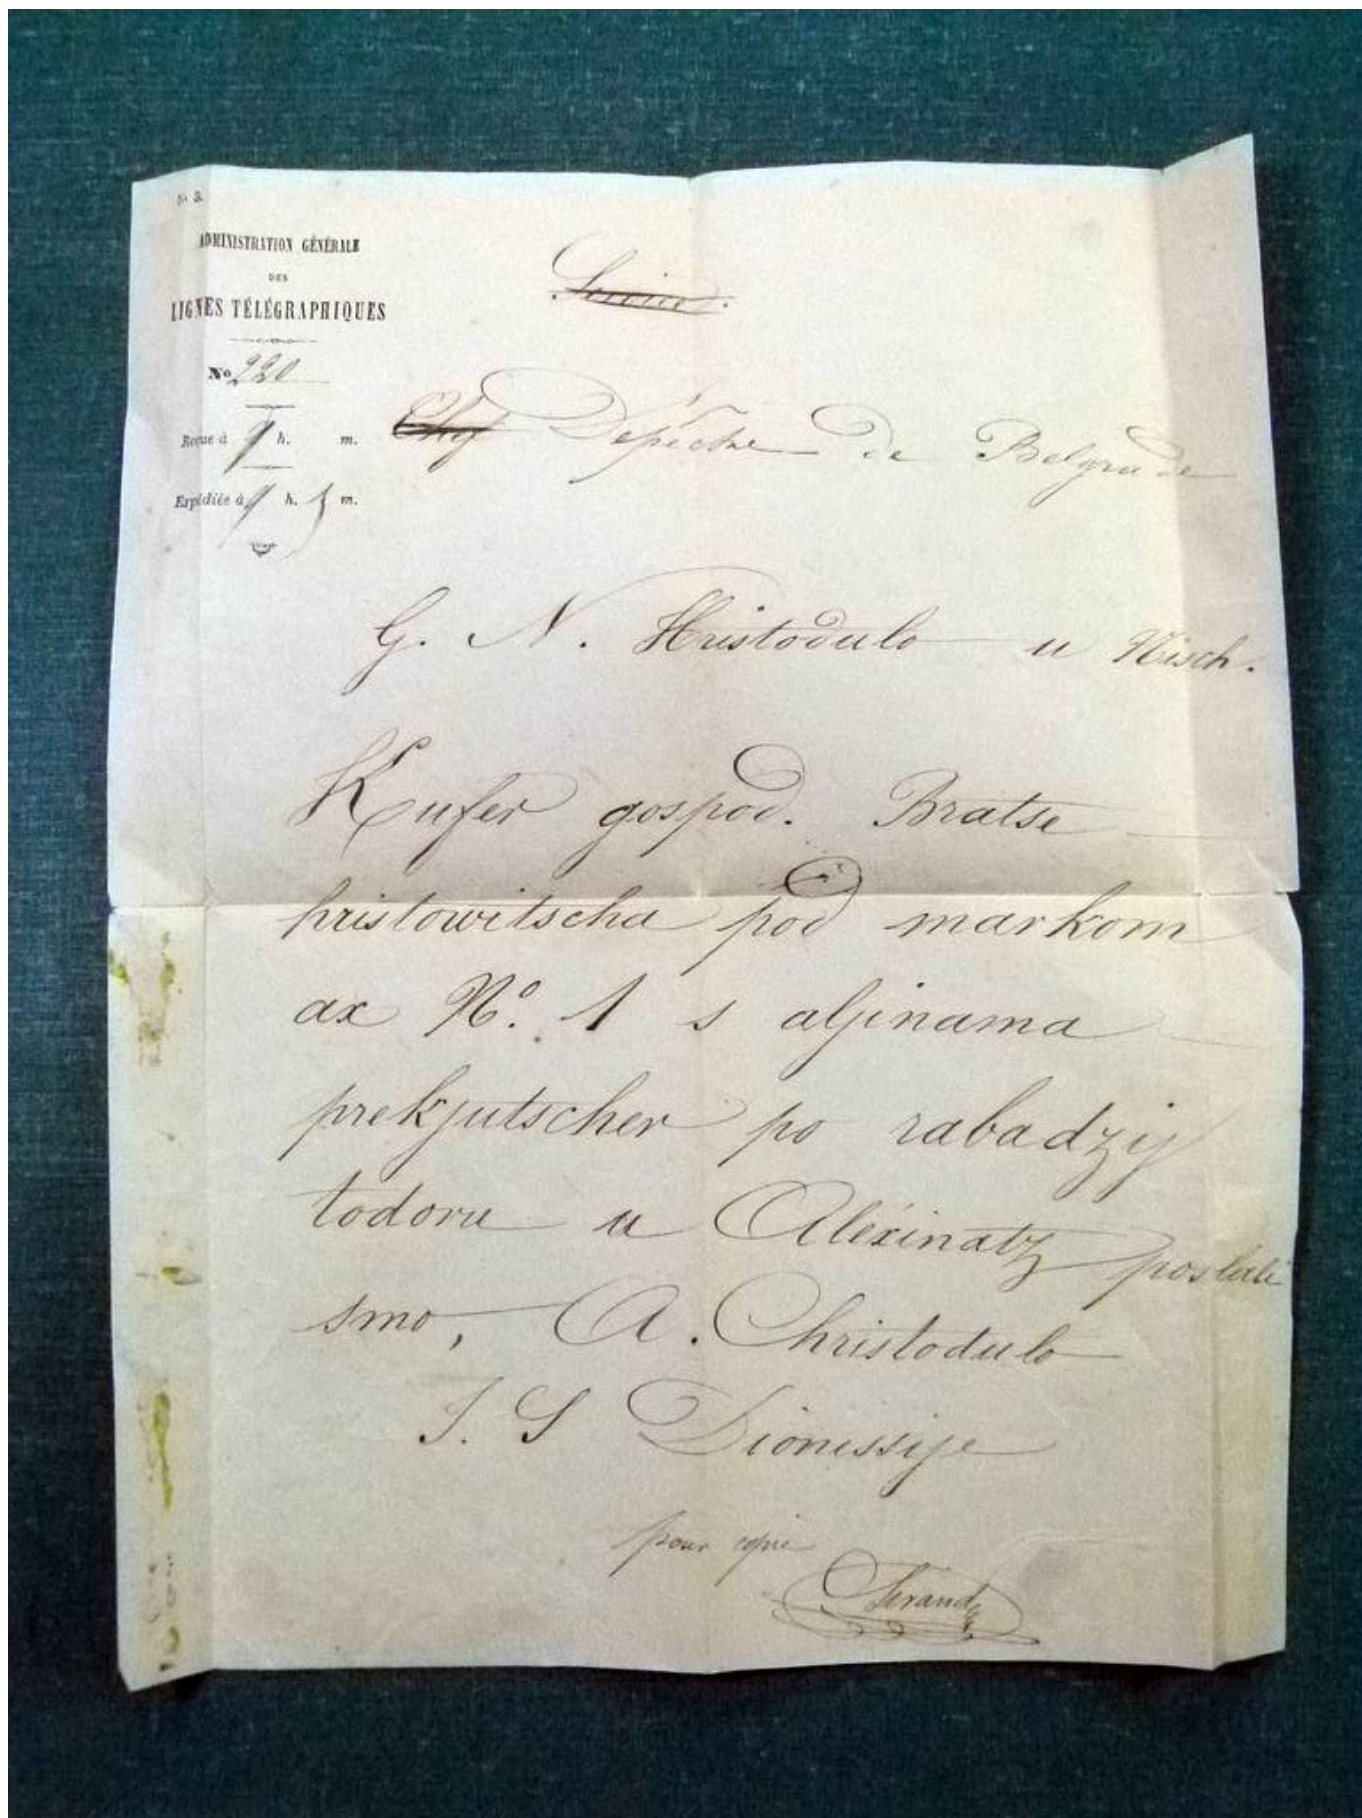 No 3.
ADMINISTRATION GÉNÉRALE
DES
LIGNES TÉLÉGRAPHIQUES
No 220
Reçue à h. m.
Expédiée à h. m.
Service.
Chef Dépêche de Belgrade
G. N. Hristodulo u Nisch.
Kufer gospod. Bratse
hristowitscha pod markom
ax No. 1 s aljinama
prekjutscher po rabadzij
todoru u Aléxinatz poslali
smo, A. Christodulo
J. S Dionissije
pour copie